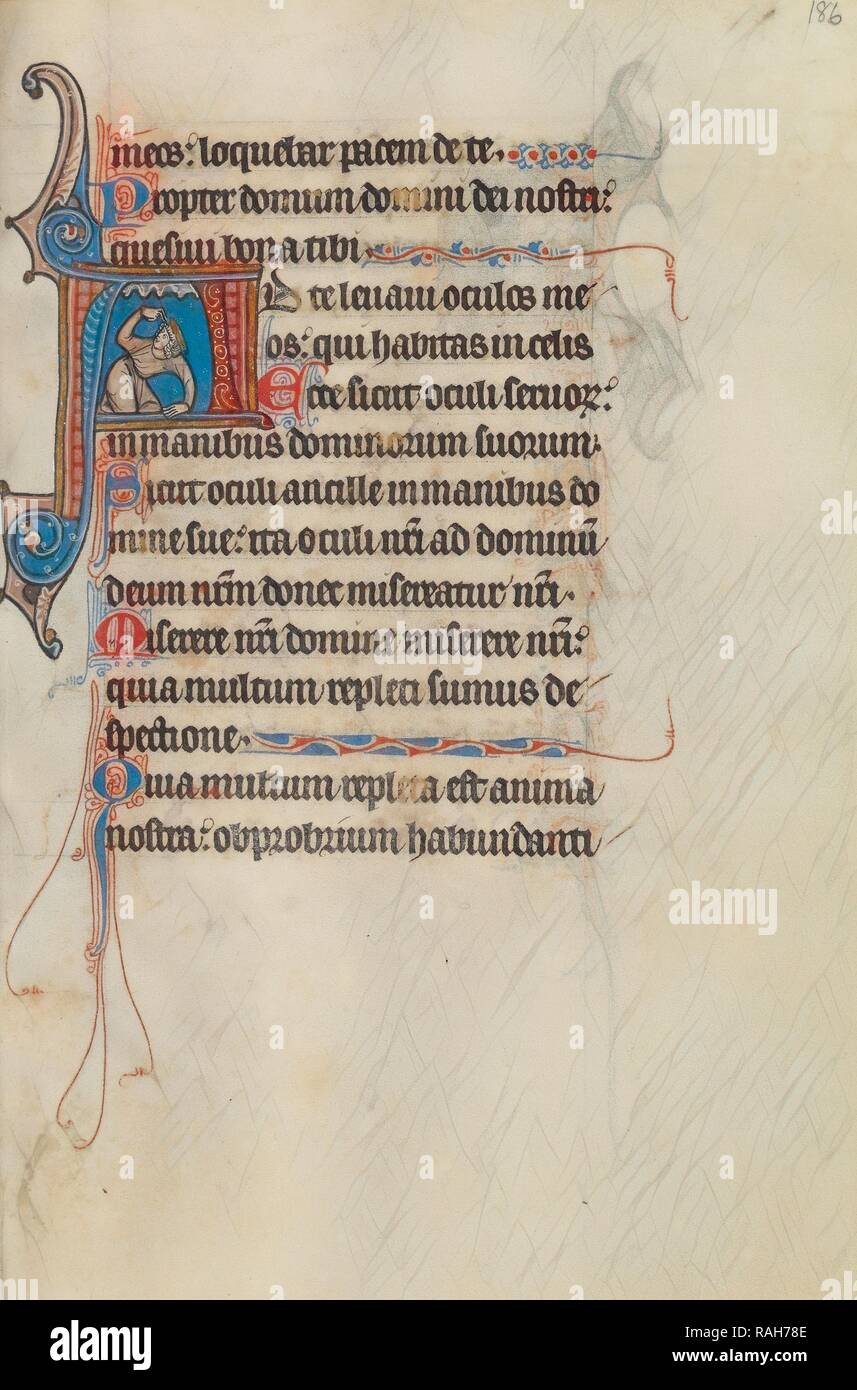 186
meos: loquebar pacem de te.
Propter domum domini dei nostri:
quesiui bona tibi.
AD te leuaui oculos me
os: qui habitas in celis
Ecce sicut oculi seruoꝝ:
in manibus dominorum suorum.
Sicut oculi ancille in manibus do
mine sue: ita oculi nr̄i ad dominū
deum nr̄m donec misereatur nr̄i.
Miserere nr̄i domine miserere nr̄i:
quia multum repleti sumus de
spectione.
Quia multum repleta est anima
nostra: obprobrium habundanti
alamy
alamy
alamy
alamy
a
a
a
a
a
a
alamy
Image ID: RAH78E
www.alamy.com